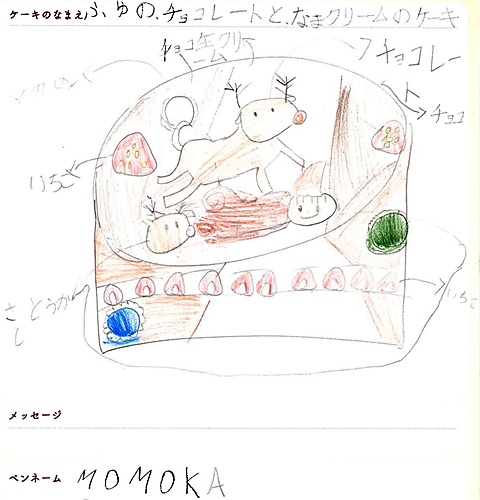 ケーキのなまえ ふゆの、チョコレートと、なまクリームのケーキ
チョコ生クリ
ーム
チョコレー
ト
チョコ
マカロン
いちご
さとうがし
いちご
メッセージ
ペンネーム MOMOKA